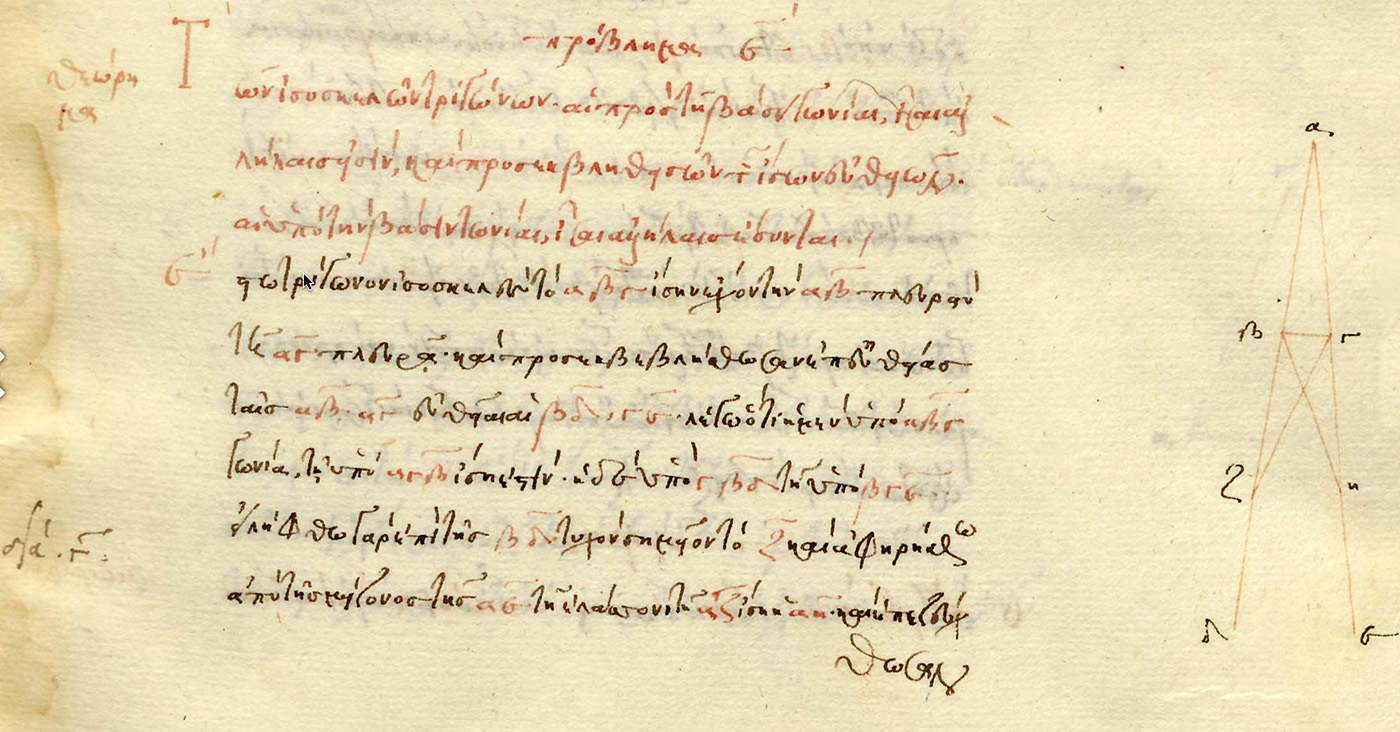 πρόβλημα ε
θεώρη
μα
Τ
ῶν ἰσοσκελῶν τριγώνων αἱ πρὸς τῇ βάσει γωνίαι, ἴσαι ἀλ
λήλαις εἰσίν, καὶ προσεκβληθεισῶν τῶν ἴσων εὐθειῶν
αἱ ὑπὸ τὴν βάσιν γωνίαι, ἴσαι ἀλλήλαις ἔσονται
ε
στω τρίγωνον ἰσοσκελὲς τὸ αβγ ἴσην ἔχον τὴν αβ πλευρὰν
τῇ αγ πλευρᾷ καὶ προσεκβεβλήσθωσαν ἐπ' εὐθείας
ταῖς αβ αγ εὐθεῖαι αἱ βδ γε λέγω ὅτι ἡ μὲν ὑπὸ αβγ
γωνία, τῇ ὑπὸ αγβ ἴση ἐστίν ἡ δὲ ὑπὸ γβδ τῇ ὑπὸ βγε
εἰλήφθω γὰρ ἐπὶ τῆς βδ τυχὸν σημεῖον τὸ ζ καὶ ἀφῃρήσθω
διὰ γ
ἀπὸ τῆς μείζονος τῆς αε τῇ ἐλάσσονι τῇ αζ ἴση ἡ αη καὶ ἐπεζεύχ
θωσαν
α
β γ
ζ η
δ ε